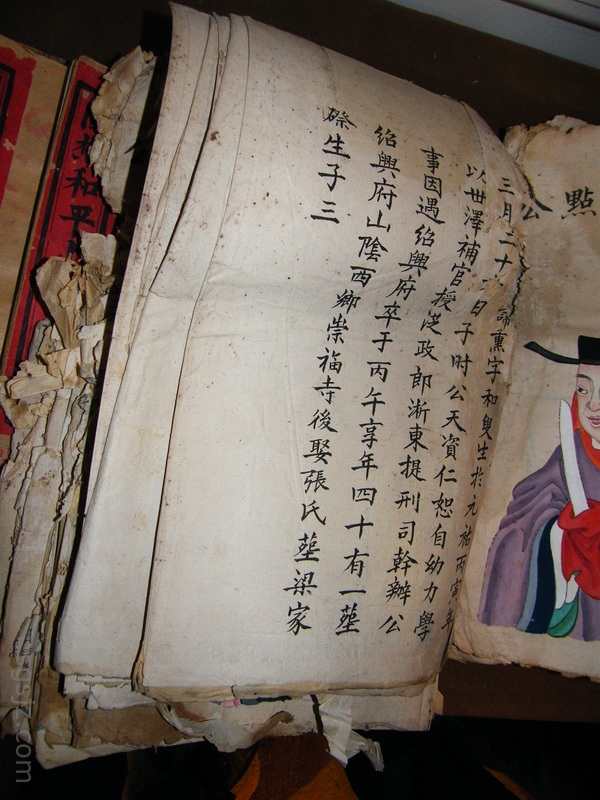 點公
諦熏字和叟生於元祐丙寅年
三月二十日子时公天資仁恕自幼力學
以世澤補官授從政郎浙東提刑司幹辦公
事因遇紹興府卒于丙午享年四十有一塟
紹興府山陰西鄉崇福寺後娶張氏塟梁家
磜生子三
和平